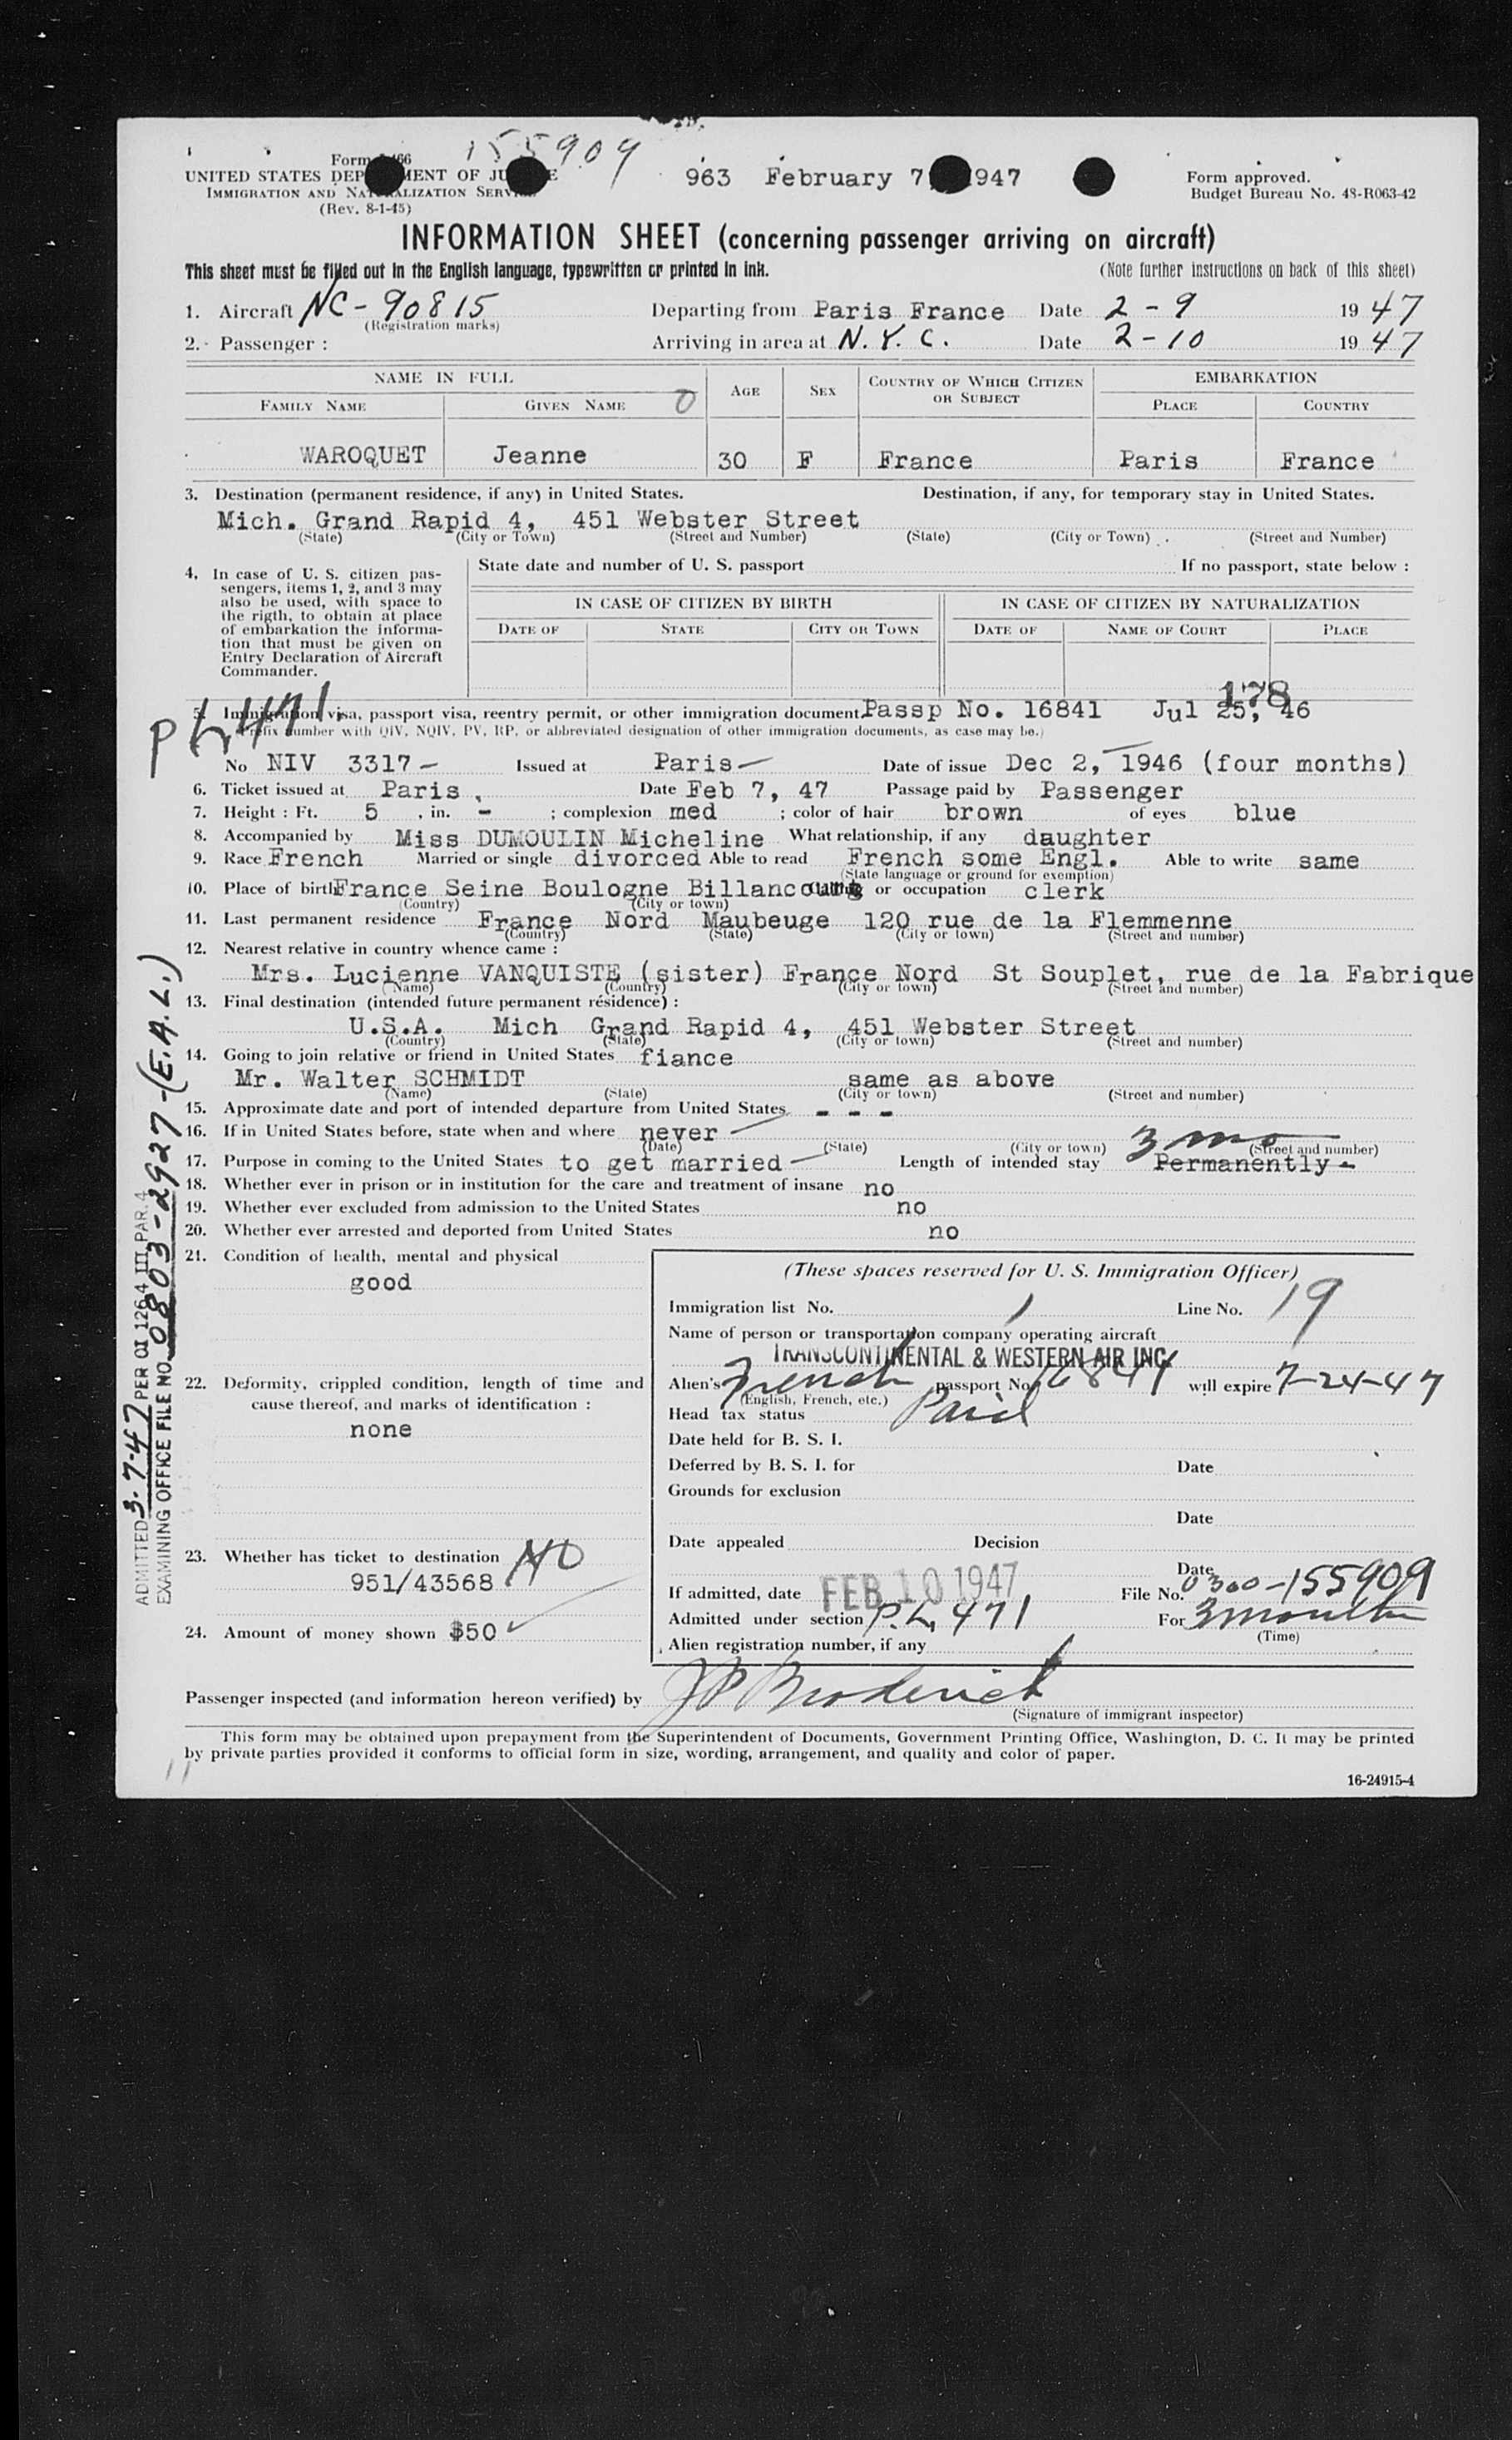 155909
Form I-466
UNITED STATES DEPARTMENT OF JUSTICE
IMMIGRATION AND NATURALIZATION SERVICE
(Rev. 8-1-45)
963 February 7, 1947
Form approved.
Budget Bureau No. 43-R063-42
INFORMATION SHEET (concerning passenger arriving on aircraft)
This sheet must be filled out in the English language, typewritten or printed in ink. (Note further instructions on back of this sheet)
1. Aircraft NC-90815 Departing from Paris France Date 2-9 1947
(Registration marks)
2. Passenger: Arriving in area at N.Y.C. Date 2-10 1947
NAME IN FULL AGE SEX COUNTRY OF WHICH CITIZEN OR SUBJECT EMBARKATION
FAMILY NAME GIVEN NAME 0 PLACE COUNTRY
WAROQUET Jeanne 30 F France Paris France
3. Destination (permanent residence, if any) in United States. Destination, if any, for temporary stay in United States.
Mich. Grand Rapid 4, 451 Webster Street
(State) (City or Town) (Street and Number) (State) (City or Town) (Street and Number)
4. In case of U. S. citizen pas-
sengers, items 1, 2, and 3 may
also be used, with space to
the rigth, to obtain at place
of embarkation the informa-
tion that must be given on
Entry Declaration of Aircraft
Commander.
State date and number of U. S. passport If no passport, state below :
IN CASE OF CITIZEN BY BIRTH IN CASE OF CITIZEN BY NATURALIZATION
DATE OF STATE CITY OR TOWN DATE OF NAME OF COURT PLACE
178
PL 471
5. Immigration visa, passport visa, reentry permit, or other immigration document. Passp No. 16841 Jul 25, 46
(Prefix number with QIV, NQIV, PV, RP, or abbreviated designation of other immigration documents, as case may be.)
No NIV 3317 - Issued at Paris - Date of issue Dec 2, 1946 (four months)
6. Ticket issued at Paris, Date Feb 7, 47 Passage paid by Passenger
7. Height : Ft. 5 , in. - ; complexion med ; color of hair brown of eyes blue
8. Accompanied by Miss DUMOULIN Micheline What relationship, if any daughter
9. Race French Married or single divorced Able to read French some Engl. Able to write same
(State language or ground for exemption)
10. Place of birth France Seine Boulogne Billancourt Calling or occupation clerk
(Country) (City or town)
11. Last permanent residence France Nord Maubeuge 120 rue de la Flemmenne
(Country) (State) (City or town) (Street and number)
12. Nearest relative in country whence came :
Mrs. Lucienne VANQUISTE (sister) France Nord St Souplet, rue de la Fabrique
(Name) (Country) (City or town) (Street and number)
13. Final destination (intended future permanent résidence) :
U.S.A. Mich Grand Rapid 4, 451 Webster Street
(Country) (State) (City or town) (Street and number)
14. Going to join relative or friend in United States fiance
Mr. Walter SCHMIDT same as above
(Name) (State) (City or town) (Street and number)
15. Approximate date and port of intended departure from United States - - -
16. If in United States before, state when and where never
(Date) (State) (City or town) (Street and number)
3 mo
17. Purpose in coming to the United States to get married - Length of intended stay Permanently -
18. Whether ever in prison or in institution for the care and treatment of insane no
19. Whether ever excluded from admission to the United States no
20. Whether ever arrested and deported from United States no
21. Condition of health, mental and physical
good
22. Deformity, crippled condition, length of time and
cause thereof, and marks of identification :
none
23. Whether has ticket to destination NO
951/43568
24. Amount of money shown $50
(These spaces reserved for U. S. Immigration Officer)
Immigration list No. 1 Line No. 19
Name of person or transportation company operating aircraft
TRANSCONTINENTAL & WESTERN AIR INC.
Alien's French passport No. 16841 will expire 7-24-47
(English, French, etc.)
Head tax status Paid
Date held for B. S. I.
Deferred by B. S. I. for Date
Grounds for exclusion
Date
Date appealed Decision
Date
If admitted, date FEB 10 1947 File No. 0300-155909
Admitted under section P.L. 471 For 3 months
(Time)
Alien registration number, if any
Passenger inspected (and information hereon verified) by JP Broderick
(Signature of immigrant inspector)
This form may be obtained upon prepayment from the Superintendent of Documents, Government Printing Office, Washington, D. C. It may be printed
by private parties provided it conforms to official form in size, wording, arrangement, and quality and color of paper.
16-24915-4
ADMITTED 3-7-47 PER OI 126.4 III PAR. 4
EXAMINING OFFICE FILE NO. 0803-2927-(E.A.L.)